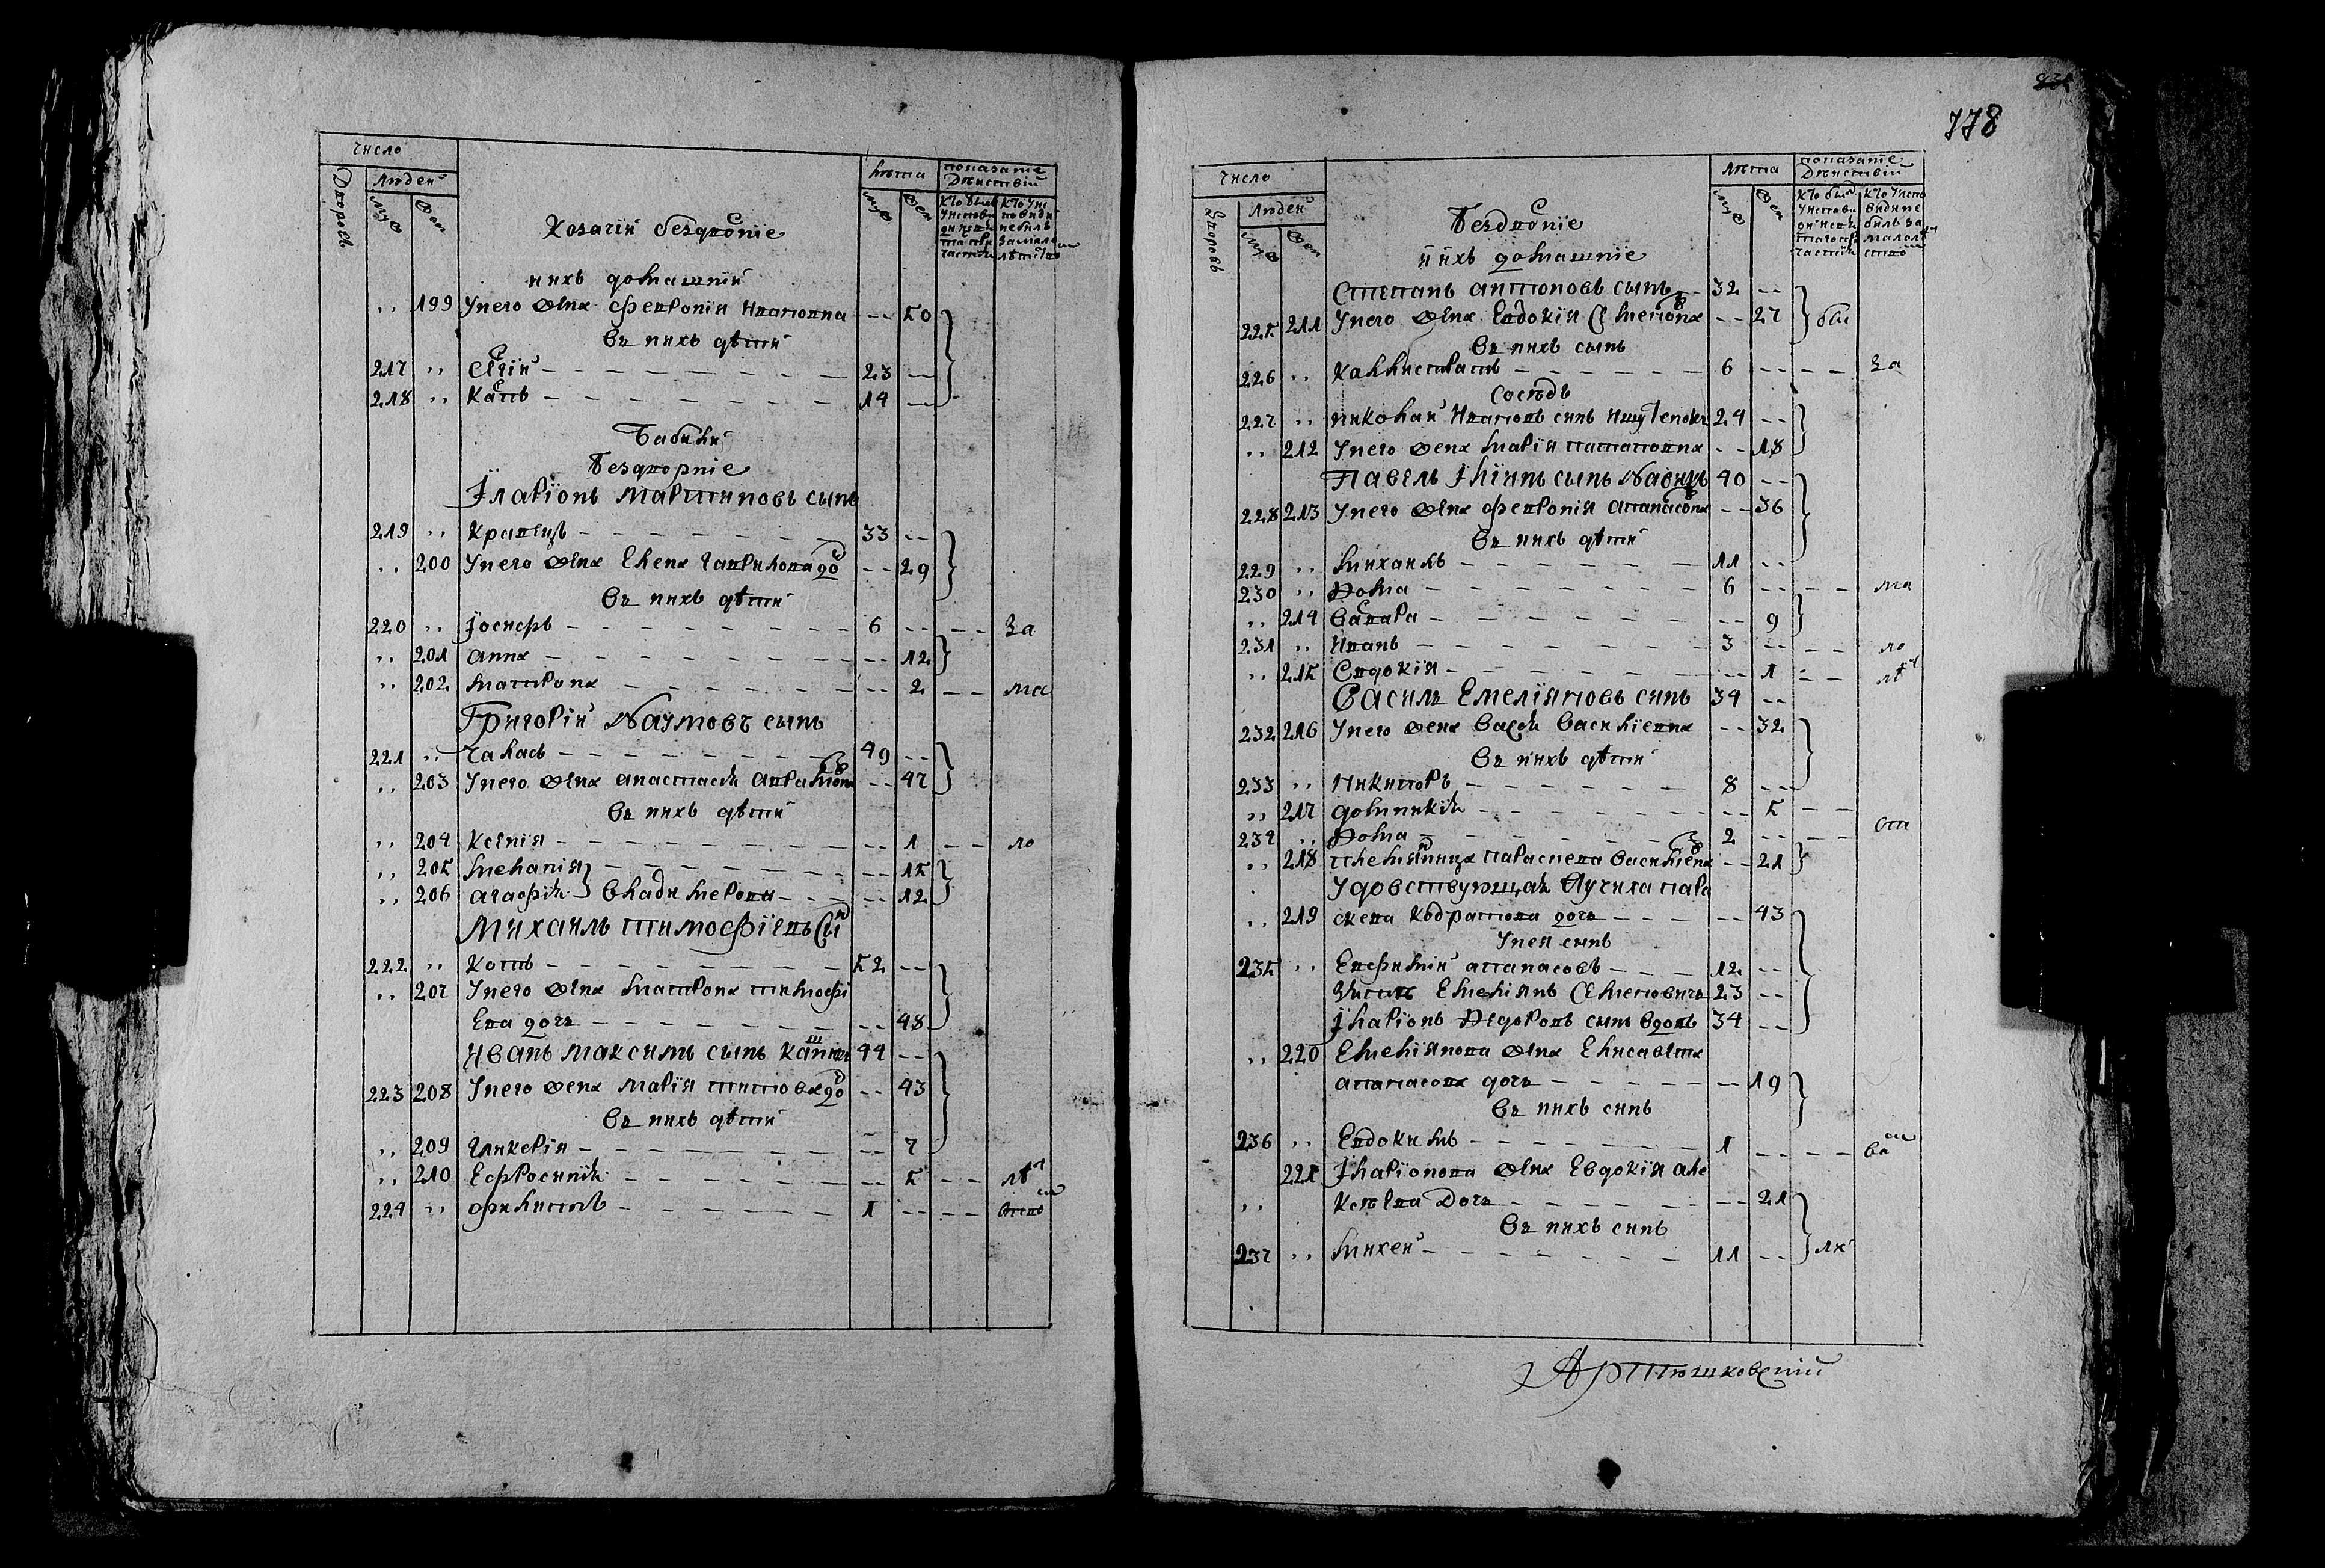 число
лѣта
показаніе дѣйствій
Дворовъ
людей
муж
жен
муж
жен
Козачіи бездворніе
ихъ домашніи
199 У него жена Февронія Иванова 50
въ нихъ дѣти
217 Сергій 23
218 Карпъ 14
Бабичи
бездворніе
Іларіонъ Мартиновъ сынъ
219 Кравецъ 33
200 У него жена Елена Гаврилова до 29
въ нихъ дѣти
220 Іосифъ 6 за
201 Анна 12
202 Матрона 2 ма
Григорій Наумовъ сынъ
221 Чалась 49
203 У него жена Анастасія Аврамова 47
въ нихъ дѣти
204 Ксенія 1 ло
205 Меланія 15
206 Агафія Владимерова 12
Михаилъ Тимофіевъ сы
222 Котъ 52
207 У него жена Матрона Тимофі
ева дочь 48
Иванъ Максимъ сынъ 44
223 208 У него жена Марія Титова до 43
въ нихъ дѣти
209 Гликерія 7
210 Ефросинія 5 лѣт
224 Филипъ 1 ство
778
число
лѣта
показаніе дѣйствій
Дворовъ
людей
муж
жен
муж
жен
Бездворніе
и ихъ домашніе
Степанъ Антоновъ сынъ 32
225 211 У него жена Евдокія Семенова 27 были
въ нихъ сынъ
226 Каллистратъ 6 за
Сосѣдъ
227 Николай Ивановъ синъ 24
212 У него жена Марія 18
Павелъ Іліинъ сынъ 40
228 213 У него жена Февронія Афанасова 36
въ нихъ дѣти
229 Михаилъ 11
230 Фома 6 ма
214 Варвара 9
231 Иванъ 3 ло
215 Евдокія 1 лѣт
Василь Емеліяновъ синъ 34
232 216 У него жена Васса Василіевна 32
въ нихъ дѣти
233 Никифоръ 8
217 Домникія 5
234 Фома 2 ст
218 племянница Параскева Василіева 21
Удовствующая Лучиха Пара
219 скева Кодратова дочь 43
У нея сынъ
235 Евфимій Афанасовъ 12
Зять Емеліянъ Семеновичъ 23
Іларіонъ Федоровъ сынъ вдовъ 34
220 Емеліянова жена Елисавета
Афанасова дочь 19
въ нихъ синъ
236 Евдокимъ 1 ва
221 Іларіонова жена Евдокія Але
ксѣева дочь 21
въ нихъ синъ
237 Михей 11